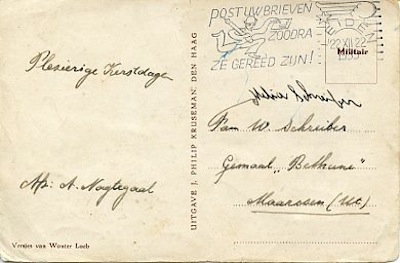 POST UW BRIEVEN
ZODRA
ZE GEREED ZIJN!
LEIDEN
22.XII.22
1939
Militair
Plezierige Kerstdagen
Afz: A. Nagtegaal
Versjes van Wouter Loeb
UITGAVE J. PHILIP KRUSEMAN, DEN HAAG
Schreiber
Fam W. Schreiber
Gemaal „Bethune"
Maarssen (Ut.)